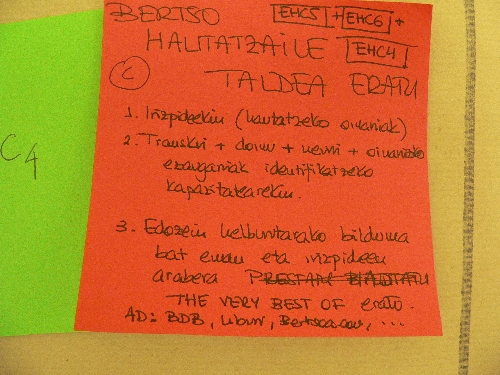 BERTSO EHC5 + EHC6 +
HAUTATZAILE EHC4
C TALDEA ERATU
1. Irizpideekin (hautatzeko oinarriak)
2. Transkri + doinu + neurri + oinarrizko
ezaugarriak identifikatzeko
kapazitatearekin.
3. Edozein helburutarako bilduma
bat eman eta irizpideen
arabera PRESTATU
THE VERY BEST OF erato.
AD: BDB, liburu, Bertsoa.eus, ...
C4